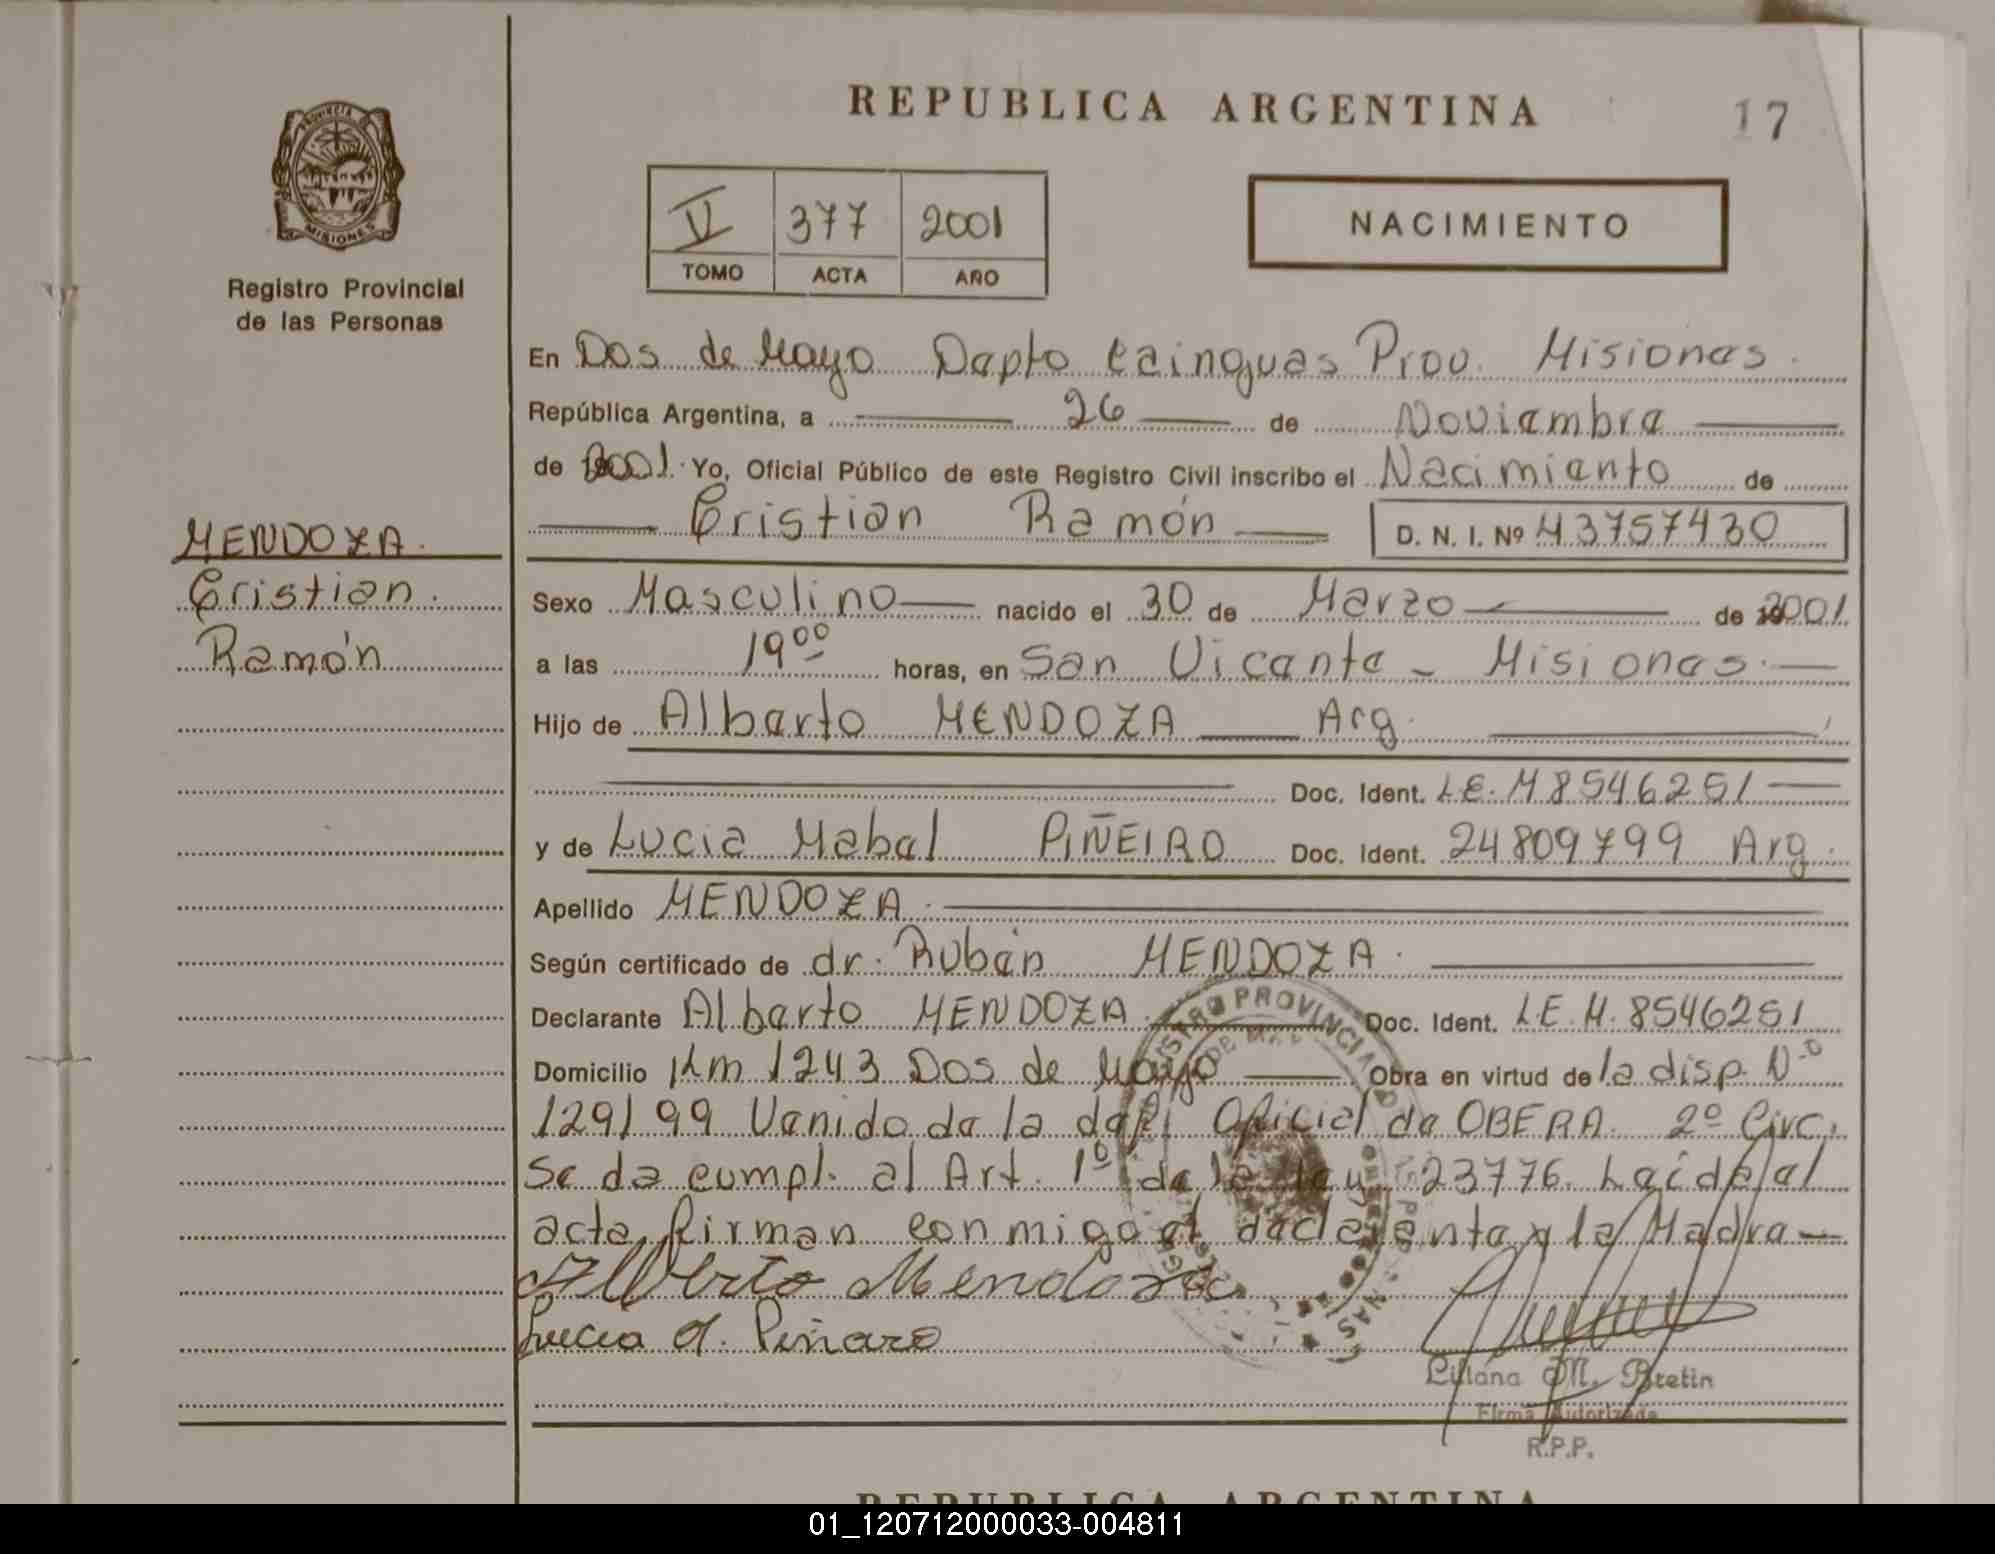 REPUBLICA ARGENTINA
17
PROVINCIA DE
MISIONES
Registro Provincial
de las Personas
V 377 2001
TOMO ACTA AÑO
NACIMIENTO
En Dos de Mayo Dapto Cainguas Prov. Misiones.
República Argentina, a 26 de Noviembre
de 2001. Yo, Oficial Público de este Registro Civil inscribo el Nacimiento de
Cristian Ramón D. N. I. Nº 43757430
MENDOZA.
Cristian.
Ramón
Sexo Masculino nacido el 30 de Marzo de 2001.
a las 19⁰⁰ horas, en San Vicente - Misiones.
Hijo de Alberto MENDOZA Arg.
Doc. Ident. L.E. M 8546251
y de Lucia Mabel PIÑEIRO Doc. Ident. 24809799 Arg.
Apellido MENDOZA.
Según certificado de dr. Rubén MENDOZA.
Declarante Alberto MENDOZA. Doc. Ident. L.E. M. 8546251
Domicilio Km 1243 Dos de Mayo Obra en virtud de la disp. Nº
129/99 Venido de la del. Oficial de OBERA 2º Circ.
Se da cumpl. al Art. 1º de la ley 23776. Leida el
acta, firman conmigo el declarante y la Madre
Alberto Mendoza
Lucia M. Piñaro
Liliana M. Bretin
Firma Autorizada
R.P.P.
REPUBLICA ARGENTINA
01_120712000033-004811